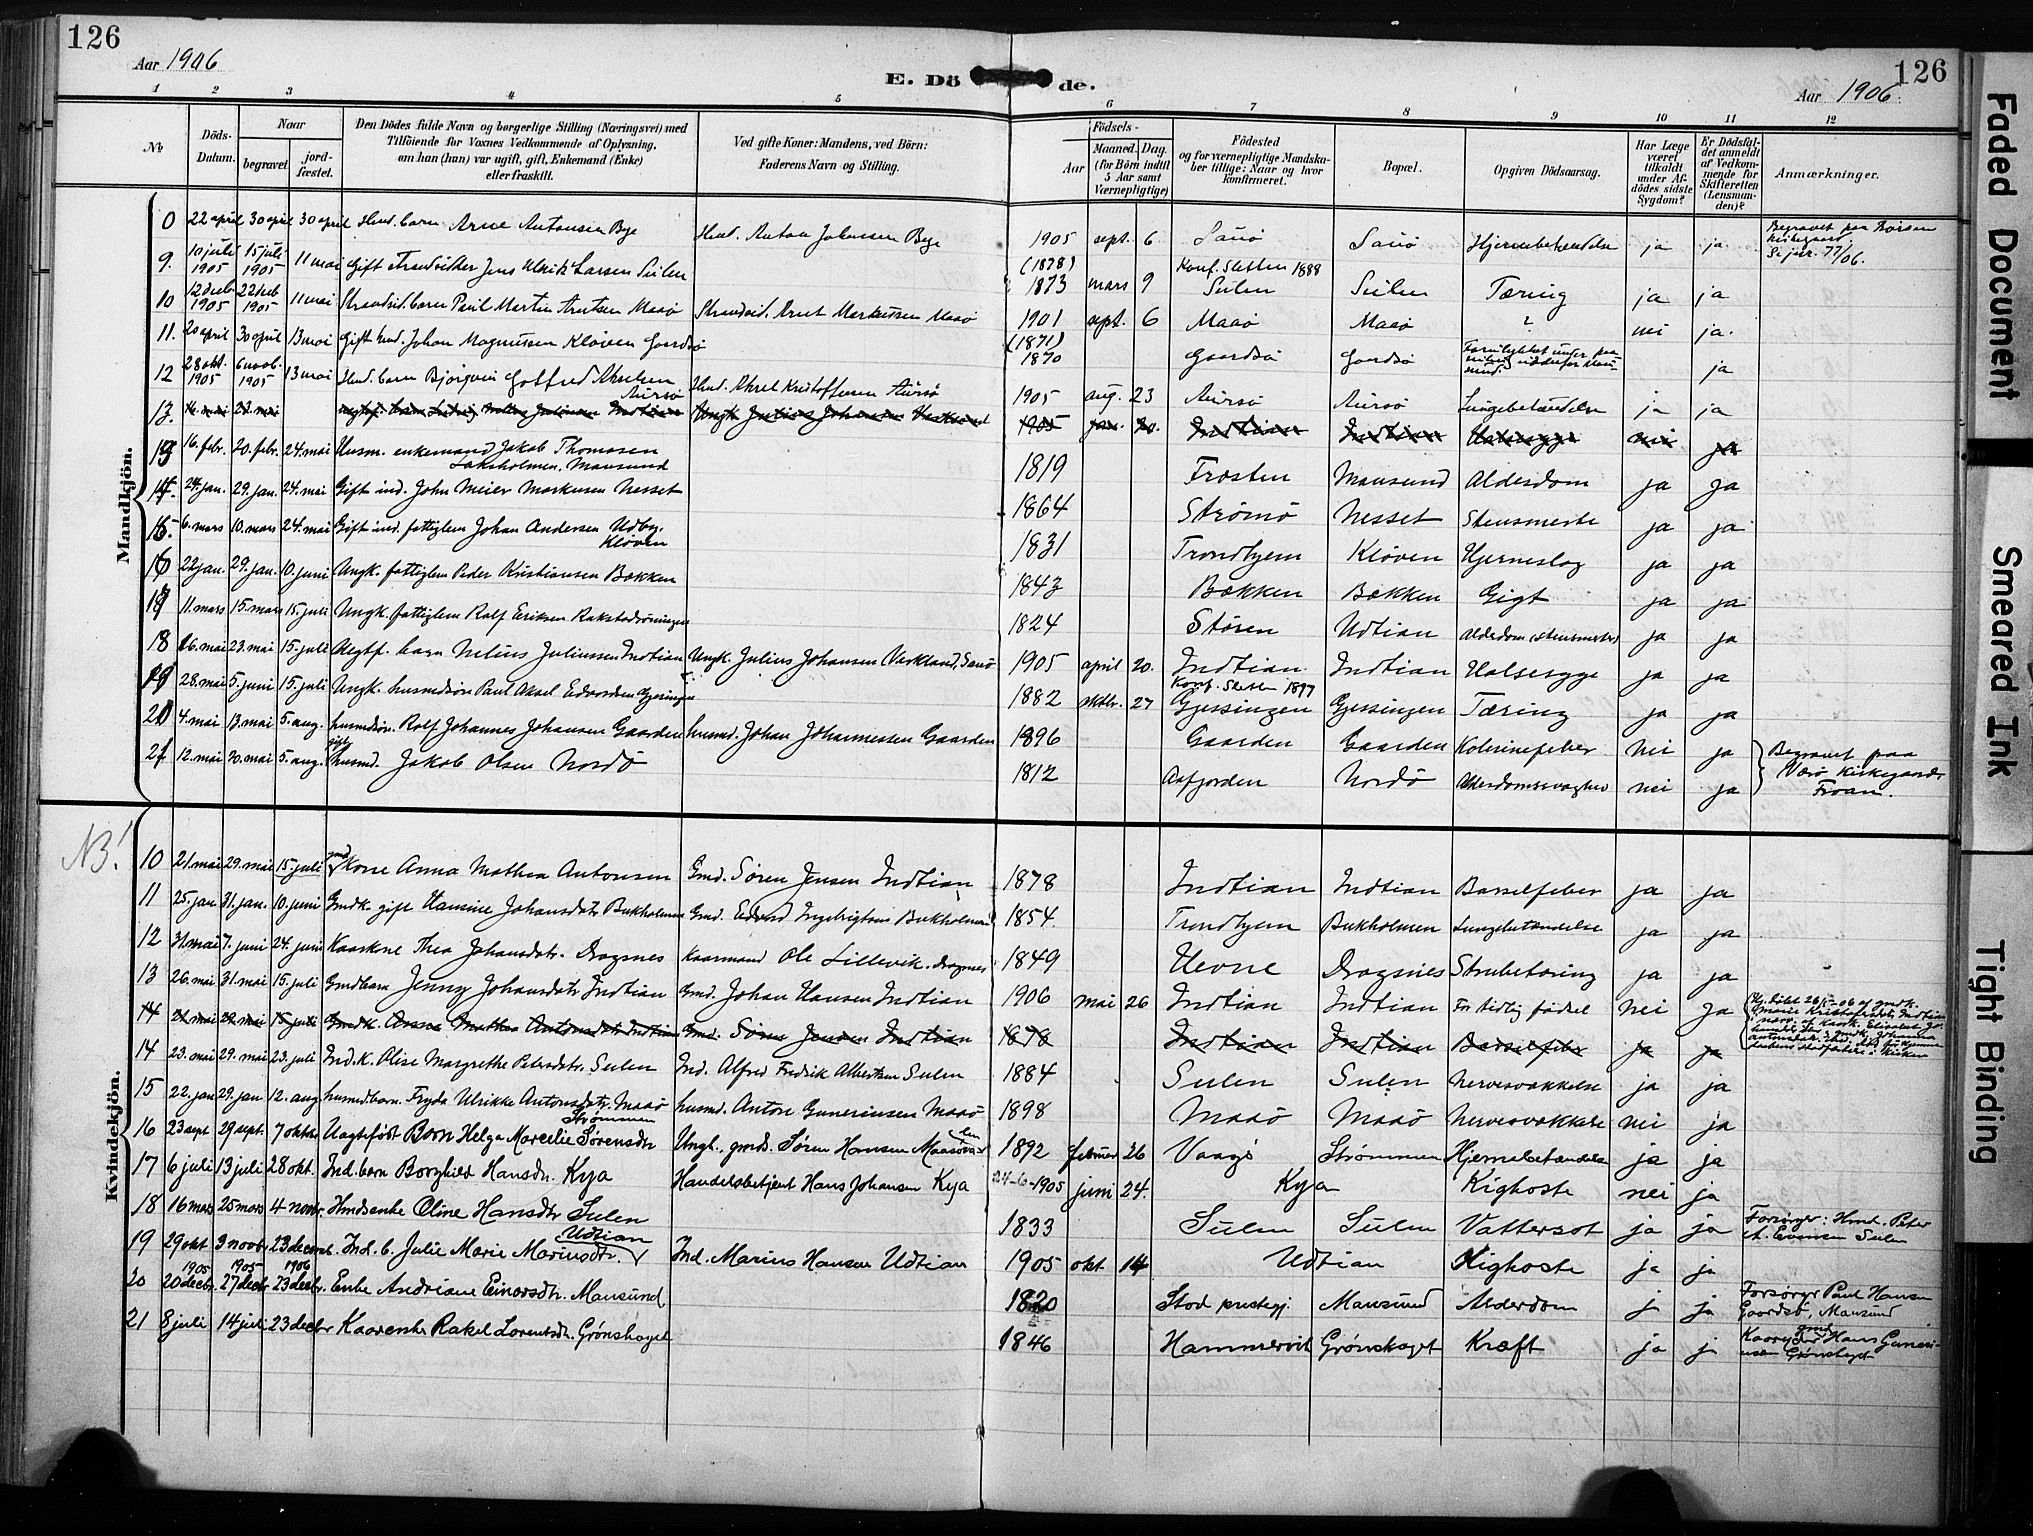 126
Aar 1906
E. Dö de.
Aar 1906.
126
1 2 3 4 5 6 7 8 9 10 11 12
No
Döds-Datum.
Naar
begravet.
jord-fæstet.
Den Dödes fulde Navn og borgerlige Stilling (Næringsvei) med
Tilföiende for Voxnes Vedkommende af Oplysning,
om han (hun) var ugift, gift, Enkemand (Enke)
eller fraskilt.
Ved gifte Koner: Mandens, ved Börn:
Faderens Navn og Stilling.
Födsels-
Aar
Maaned. Dag.
(for Börn indtil
5 Aar samt
Værnepligtige)
Födested
og for værnepligtige Mandska-
ber tillige: Naar og hvor
konfirmeret.
Bopæl.
Opgiven Dödsaarsag.
Har Læge
været
tilkaldt
under Af-
dödes sidste
Sygdom?
Er Dödsfal-
det anmeldt
af Vedkom-
mende for
Skifteretten
(Lensman-
den)?
Anmærkninger.
Mandkjön.
0 22 april 30 april 30 april Husd. barn Arne Antonsen Bye Husd. Anton Johansen Bye 1905 sept. 6 Sauø Sauø Hjernebetændelse ja ja Begravet paa Børsen kirkegaard. 77/06.
9. 10 juli 1905 15 juli 1905 11 mai Gift Strandsidder Jens Ulrik Larsen Sulen (1878) 1873 mars 9 Konf. Sletten 1888 Sulen Sulen Tæring ja ja
10 12 deb. 1905 22 deb 1905 11 mai Strandsid. barn Paul Martin Arntsen Maaø Strandsid. Arnt Markussen Maaø 1901 sept. 6 Maaø Maaø ? nei ja.
11. 20 april 30 april 13 mai Gift husd. Johan Magnussen Kløven Gaardsø (1871) 1870 Gaardsø Gaardsø Forulykket under ja
12 28 okt. 1905 6 novb. 1905 13 mai Husd. barn Bjørgvin Gotfred Akselsen Aursø Husd. Aksel Kristoffersen Aursø 1905 aug. 23 Aursø Aursø Lungebetændelse ja ja
13. 16. mai 23. mai Indtian 1905 jan. 20. Indtian Indtian Halssyge nei ja
13 16. febr. 20. febr. 24. mai Husm. enkemand Jakob Thomasen Laksholmen, Mausund 1819 Frosten Mausund Aldesdom ja ja
14. 24. jan. 29. jan. 24. mai Gift ind. John Meier Markusen Nesset 1864 Strømø Nesset Stensmerte ja ja
15. 6. mars 10. mars 24. mai Gift ind. fattiglem Johan Andersen Udby. Kløven 1831 Trondhjem Kløven Hjerneslag ja ja
16 22 jan. 29. jan. 10. juni Ungk. fattiglem Peder Kristiansen Bakken 1843 Bakken Bakken Gigt ja ja
17 11. mars 15. mars 15. juli Ungk. fattiglem Rolf Eriksen 1824 Støren Udtian Alderdom (stensmerter) ja ja
18 16. mai 23. mai 15. juli Uegtf. barn Nelius Juliussen Indtian Ungk. Julius Johansen (Vaskland) Sauø 1905 april 20. Indtian Indtian Halsesyge ja ja
19 28. mai 5. juni 15. juli Ungk. husmdsøn Paul Aksel Edvardsen Gjessingen 1882 oktbr. 27 Konf. Sletten 1897 Gjessingen Gjessingen Tæring ja ja
20 4. mai 13. mai 5. aug. husmdsøn. Rolf Johannes Johansen Gaarden husmd. Johan Johannessen Gaarden 1896 Gaarden Gaarden Kolerinefeber nei ja Begravet paa
21 12. mai 20. mai 5. aug. gift husmd. Jakob Olsen Nordø 1812 Aafjorden Nordø Alderdomssvaghed nei ja Værø Kirkegaard Froan.
NB!
Kvindekjön.
10 21. mai 29. mai 15. juli gmd Kone Anna Mathea Antonsen Gmd. Søren Jensen Indtian 1878 Indtian Indtian Barselfeber ja ja
11 25. jan. 31. jan. 10. juni Gmdk. gift Hansine Johansdatr Bukholmen Gmd. Edvard Ingebrigtsen Bukholmen 1854. Trondhjem Bukholmen Lungebetændelse ja ja
12 31. mai 7. juni 24. juni Kaarkone Thea Johansdtr. Dragsnes Kaarmand Ole Lillevik. Dragsnes 1849 Hevne Dragsnes Strubetæring ja ja
13 26. mai 31. mai 15. juli Gmdbarn Jenny Johansdatr Indtian Gmd. Johan Hansen Indtian 1906 mai 26 Indtian Indtian For tidlig fødsel nei ja
14 21. mai 29. mai 15. juli Gmdk. Anna Mathea Antonsdatr Indtian Gmd. Søren Jensen Indtian 1878 Indtian Indtian Barselfeber ja ja
14 23. mai 29. mai 23. juli Ind. k. Olise Margrethe Petersdtr. Sulen Ind. Alfred Fredrik Albertsen Sulen 1884 Sulen Sulen Nervesvækkelse ja ja
15 22. jan 29. jan 12. aug husmd. barn. Fryda Ulrikke Antonsdtr. Maaø husmd. Anton Gunerinsen Maaø 1898 Maaø Maaø Nervesvækkelse nei ja
16 23 sept 29 sept. 7 oktbr Uegtefødt Barn Helga Marcelie Sørensdtr Strømmen Ungk. gmds. Søren Hansen 1892 februar 26 Vaagø Strømmen Hjernebetændelse ja ja
17 6 juli 13 juli 28 okt. Ind. barn Borghild Hansdtr. Kya Handelsbetjent Hans Johansen Kya 24-6-1905 juni 24. Kya Kighoste nei ja
18 16 mars 25 mars 4 novbr. Husdsenke Oline Hansdtr Sulen 1833 Sulen Sulen Vattersot ja ja Forsørger: Husd. Peter A. Evensen Sulen
19 29 okt 3 novb. 23 decemb. Ind. b. Julie Marie Mariusdtr. Udtian Ind. Marius Hansen Udtian 1905 okt 14 Udtian Kighoste ja ja
20 1905 20 decbr. 1905 27 decbr. 1906 23 decbr. Enke Andriane Einarsdtr. Mausund 1820 Stod prestegj. Mausund Alderdom ja ja Forsørger Paul Hansen Gaardsø, Mausund
21 8 juli 14 juli 23 decbr Kaarenke Rakel Lorentsdtr. Grønskaget 1846 Hammervik Grønskaget Kræft ja ja Kaaryder gmd Hans Guneri- usen Grønskaget
Faded Document
Smeared Ink
Tight Binding